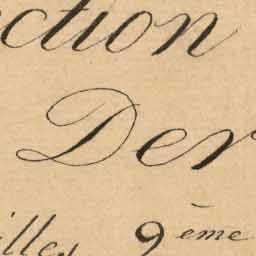 ction
Der
illes 9ème